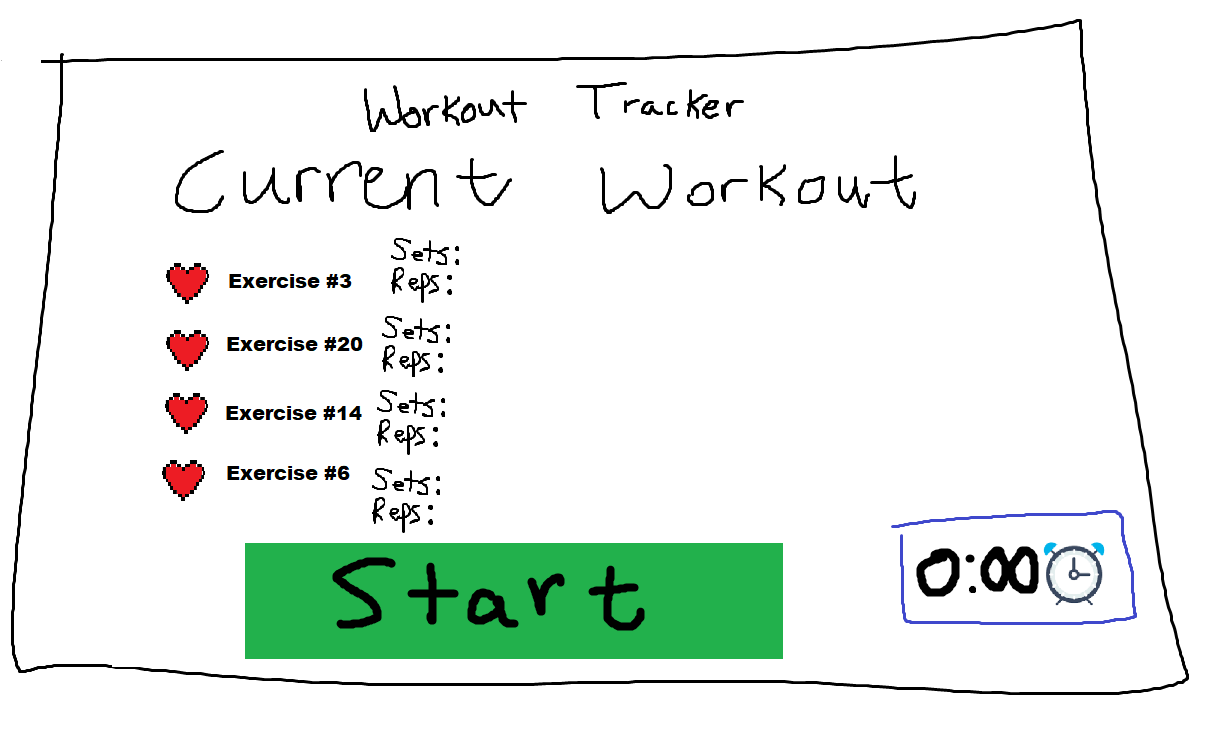 Workout Tracker
Current Workout
Exercise #3
Sets:
Reps:
Exercise #20
Sets:
Reps:
Exercise #14
Sets:
Reps:
Exercise #6
Sets:
Reps:
Start
0:00